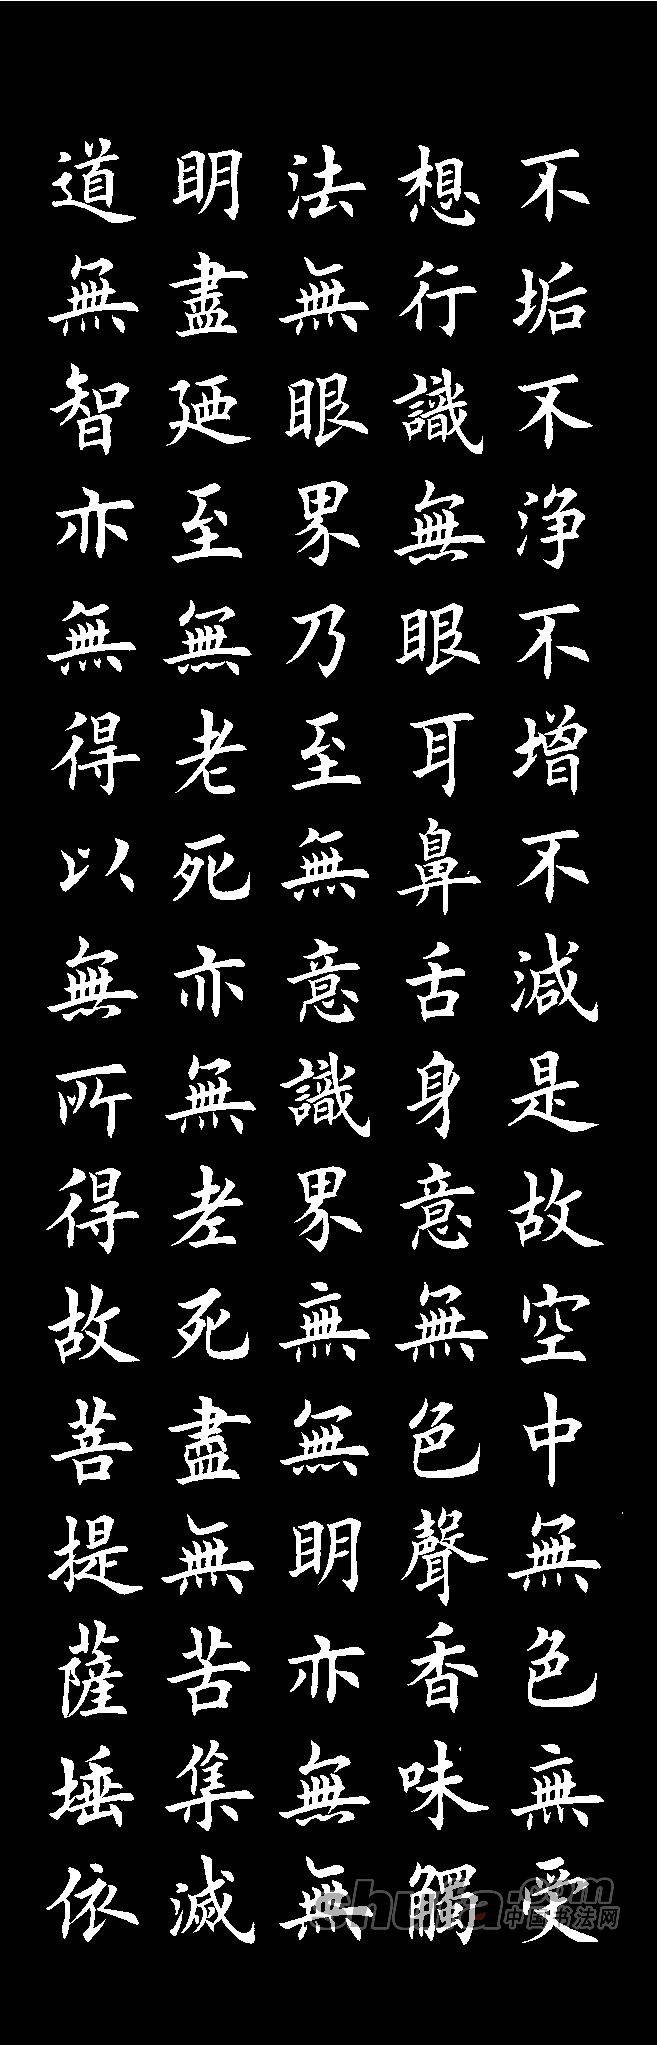 不垢不浄不增不減是故空中無色無受
想行識無眼耳鼻舌身意無色聲香味觸
法無眼界乃至無意識界無無明亦無無
明盡廼至無老死亦無老死盡無苦集滅
道無智亦無得以無所得故菩提薩埵依
shufa.com
中国书法网